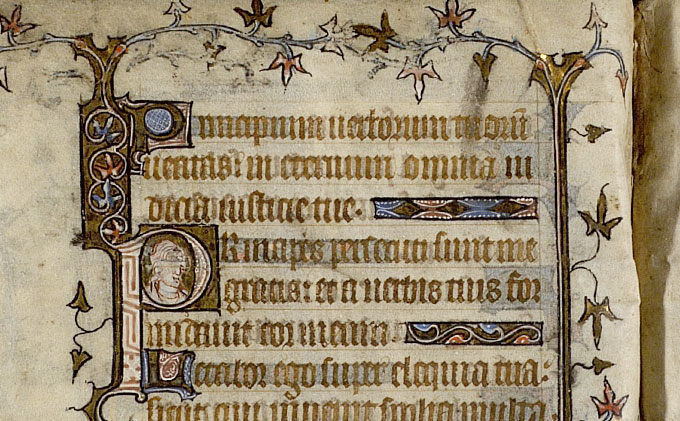 Principium uerborum tuorū
ueritas: in eternum omnia iu
dicia iusticie tue.
PRincipes persecuti sunt me
gratis: et a uerbis tuis for
midauit cor meum.
Letabor ego super eloquia tua:
sicut qui inuenit spolia multa